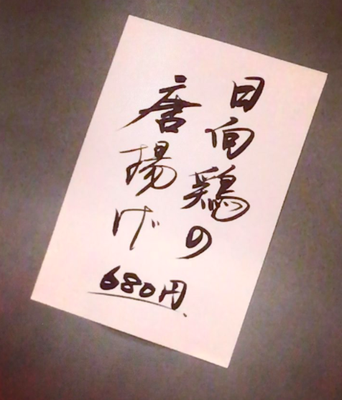 日向鶏の
唐揚げ
680円